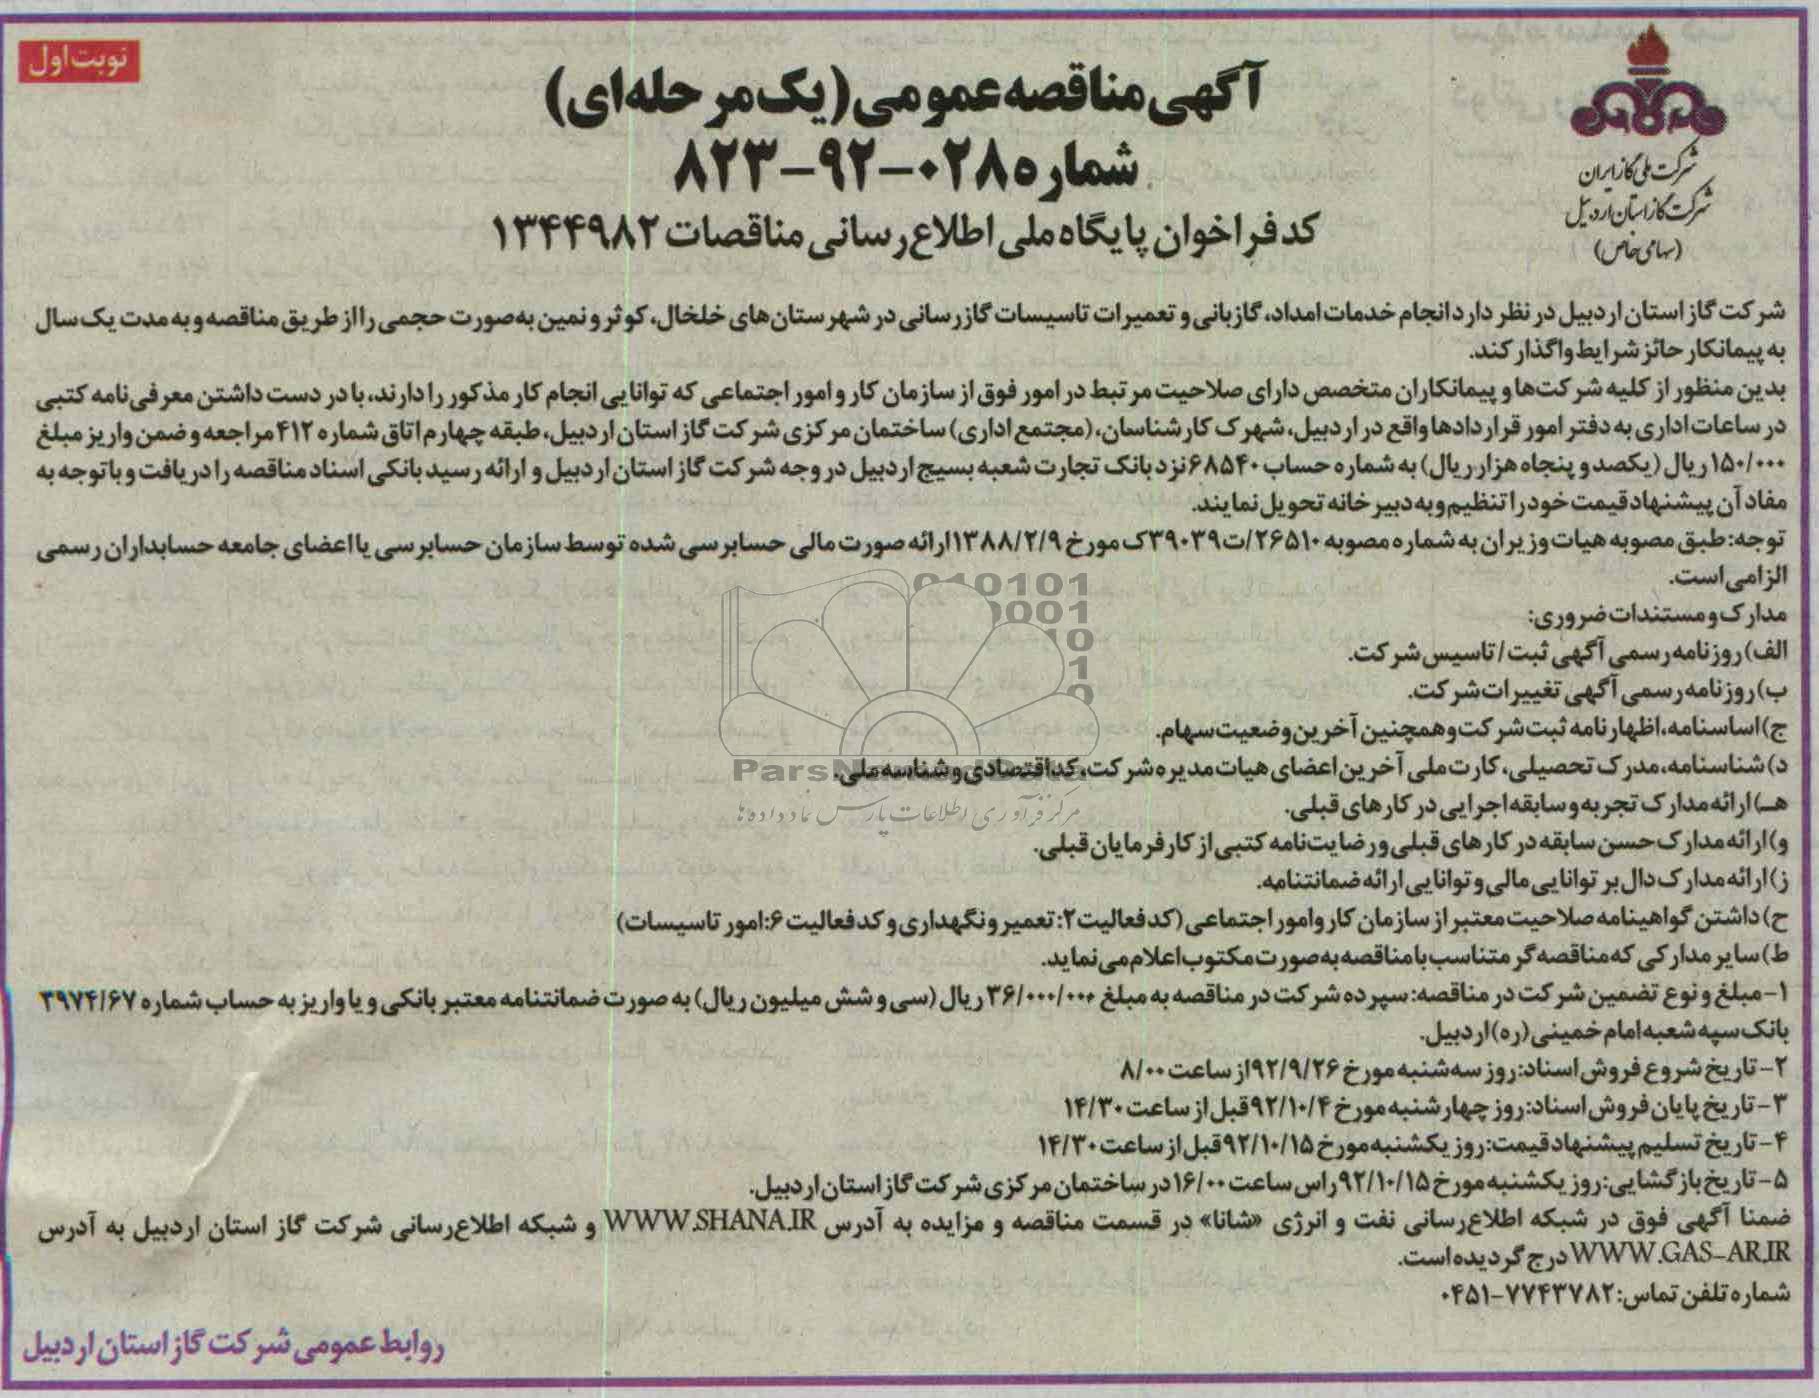 نوبت اول
آگهی مناقصه عمومی (یک مرحله‌ای)
شماره ۰۲۸-۹۲-۸۲۳
کد فراخوان پایگاه ملی اطلاع رسانی مناقصات ۱۳۴۴۹۸۲
شرکت ملی گاز ایران
شرکت گاز استان اردبیل
(سهامی خاص)
شرکت گاز استان اردبیل در نظر دارد انجام خدمات امداد، گازبانی و تعمیرات تاسیسات گازرسانی در شهرستان‌های خلخال، کوثر و نمین به‌صورت حجمی را از طریق مناقصه و به مدت یک سال
به پیمانکار حائز شرایط واگذار کند.
بدین منظور از کلیه شرکت‌ها و پیمانکاران متخصص دارای صلاحیت مرتبط در امور فوق از سازمان کار و امور اجتماعی که توانایی انجام کار مذکور را دارند، با در دست داشتن معرفی‌نامه کتبی
در ساعات اداری به دفتر امور قراردادها واقع در اردبیل، شهرک کارشناسان، (مجتمع اداری) ساختمان مرکزی شرکت گاز استان اردبیل، طبقه چهارم اتاق شماره ۴۱۲ مراجعه و ضمن واریز مبلغ
۱۵۰/۰۰۰ ریال (یکصد و پنجاه هزار ریال) به شماره حساب ۶۸۵۴۰ نزد بانک تجارت شعبه بسیج اردبیل در وجه شرکت گاز استان اردبیل و ارائه رسید بانکی اسناد مناقصه را دریافت و با توجه به
مفاد آن پیشنهاد قیمت خود را تنظیم و به دبیرخانه تحویل نمایند.
توجه: طبق مصوبه هیات وزیران به شماره مصوبه ۲۶۵۱۰/ت۳۹۰۳۹ک مورخ ۱۳۸۸/۲/۹ ارائه صورت مالی حسابرسی شده توسط سازمان حسابرسی یا اعضای جامعه حسابداران رسمی
الزامی است.
مدارک و مستندات ضروری:
الف) روزنامه رسمی آگهی ثبت/ تاسیس شرکت.
ب) روزنامه رسمی آگهی تغییرات شرکت.
ج) اساسنامه، اظهارنامه ثبت شرکت و همچنین آخرین وضعیت سهام.
د) شناسنامه، مدرک تحصیلی، کارت ملی آخرین اعضای هیات مدیره شرکت، کد اقتصادی و شناسه ملی.
هـ) ارائه مدارک تجربه و سابقه اجرایی در کارهای قبلی.
و) ارائه مدارک حسن سابقه در کارهای قبلی و رضایت‌نامه کتبی از کارفرمایان قبلی.
ز) ارائه مدارک دال بر توانایی مالی و توانایی ارائه ضمانتنامه.
ح) داشتن گواهینامه صلاحیت معتبر از سازمان کار و امور اجتماعی (کد فعالیت ۲: تعمیر و نگهداری و کد فعالیت ۶: امور تاسیسات)
ط) سایر مدارکی که مناقصه‌گر متناسب با مناقصه به صورت مکتوب اعلام می‌نماید.
۱- مبلغ و نوع تضمین شرکت در مناقصه: سپرده شرکت در مناقصه به مبلغ ۳۶/۰۰۰/۰۰۰ ریال (سی و شش میلیون ریال) به صورت ضمانتنامه معتبر بانکی و یا واریز به حساب شماره ۳۹۷۴/۶۷
بانک سپه شعبه امام خمینی (ره) اردبیل.
۲- تاریخ شروع فروش اسناد: روز سه‌شنبه مورخ ۹۲/۹/۲۶ از ساعت ۸/۰۰
۳- تاریخ پایان فروش اسناد: روز چهارشنبه مورخ ۹۲/۱۰/۴ قبل از ساعت ۱۴/۳۰
۴- تاریخ تسلیم پیشنهاد قیمت: روز یکشنبه مورخ ۹۲/۱۰/۱۵ قبل از ساعت ۱۴/۳۰
۵- تاریخ بازگشایی: روز یکشنبه مورخ ۹۲/۱۰/۱۵ راس ساعت ۱۶/۰۰ در ساختمان مرکزی شرکت گاز استان اردبیل.
ضمنا آگهی فوق در شبکه اطلاع‌رسانی نفت و انرژی «شانا» در قسمت مناقصه و مزایده به آدرس WWW.SHANA.IR و شبکه اطلاع‌رسانی شرکت گاز استان اردبیل به آدرس
WWW.GAS-AR.IR درج گردیده است.
شماره تلفن تماس: ۷۷۴۳۷۸۲-۰۴۵۱
روابط عمومی شرکت گاز استان اردبیل
مرکز فرآوری اطلاعات پارس نماد داده‌ها